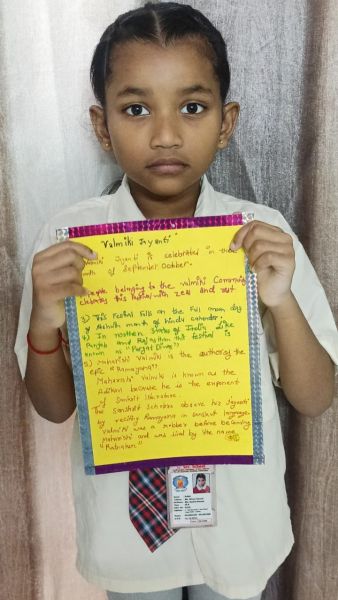 "Valmiki Jayanti"
Valmiki Jyanti is celebrated in the
month of September October.
People belonging to the Valmiki Community
celebrate this festival with zeal and
3) This Festival Falls on the Full moon day
of Ashwin month of hindu calendar.
4) In northen States of India Like
Punjab and Rajasthan this festival is
known as "Pargat Diwas"
5) Maharishi Valmiki is the author of the
epic "Ramayana"
Maharishi Valmiki is known as the
Adikavi because he is the exponent
of Sanskrit literature.
The Sanskrit Scholars observe his Jayanti
by reciting Ramayana in Sanskrit language.
Valmiki was a robber before becoming
Maharishi and was lived by the name
"Ratnakar"